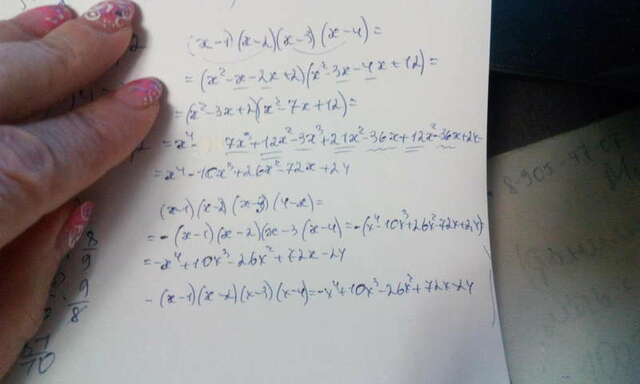 (x-1)(x-2)(x-3)(x-4)=
=(x²-x-2x+2)(x²-3x-4x+12)=
=(x²-3x+2)(x²-7x+12)=
=x⁴-7x³+12x²-3x³+21x²-36x+12x²-36x+24=
=x⁴-10x³+26x²-72x+24
(x-1)(x-2)(x-3)(4-x)=
=-(x-1)(x-2)(x-3(x-4)=-(x⁴-10x³+26x²-72x+24)
=-x⁴+10x³-26x²+72x-24
-(x-1)(x-2)(x-3)(x-4)=-x⁴+10x³-26x²+72x-24
8
9
9
8
8-905-47-07